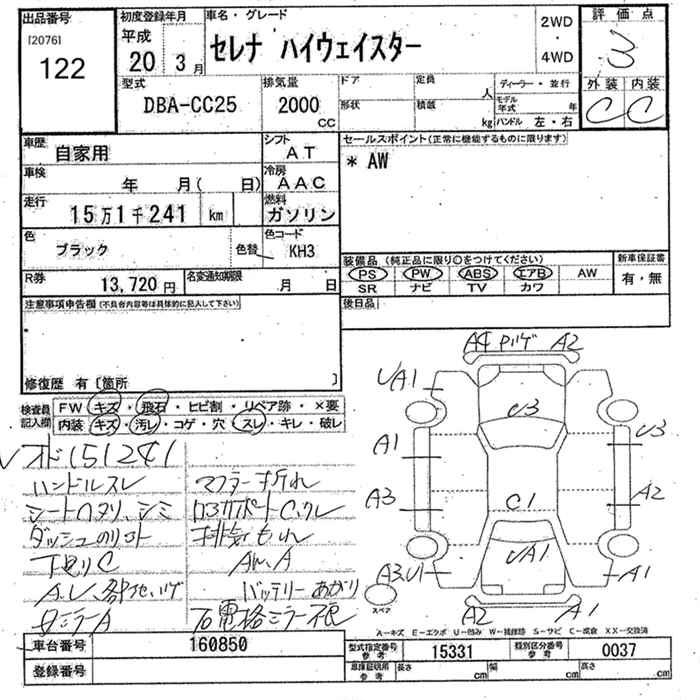 出品番号
[2076]
122
初度登録年月
平成
20 3月
車名・グレード
セレナ ハイウェイスター
2WD
・
4WD
評価点
3
外装 内装
C C
型式
DBA-CC25
排気量
2000
CC
ドア
形状
定員
人
積載
kg
ディーラー・並行
モデル年式 年
ハンドル 左・右
車歴
自家用
シフト
AT
車検
年 月( 日)
冷房
AAC
走行
15万1千241 km
燃料
ガソリン
色
ブラック
色替
色コード
KH3
R券
13,720円
名変通知期限
月 日
セールスポイント(正常に機能するものに限ります)
* AW
装備品(純正品に限り○をつけてください)
PS PW ABS エアB AW
SR ナビ TV カワ
新車保証書
有・無
後日品
注意事項申告欄(不具合内容等は具体的に記入して下さい)
修復歴 有[箇所 ]
検査員
記入欄
FW キズ・飛石・ヒビ割・リペア跡・×要
内装 キズ・汚レ・コゲ・穴・スレ・キレ・破レ
151241
ハンドルスレ
シート
ダッシュ
マフラー折れ
排気もれ
AW.A
バッテリーあがり
ミラーA
A4 A2
UA1
U3
U3
A1
A3
C1
A2
UA1
A3.U1
A1
スペア
A2
A1
A-キズ E-エクボ U-凹み W-補修跡 S-サビ C-腐食 XX-交換済
車台番号
160850
登録番号
型式指定番号
参考
15331
類別区分番号
参考
0037
車庫証明用
参考
長さ cm
幅 cm
高さ cm